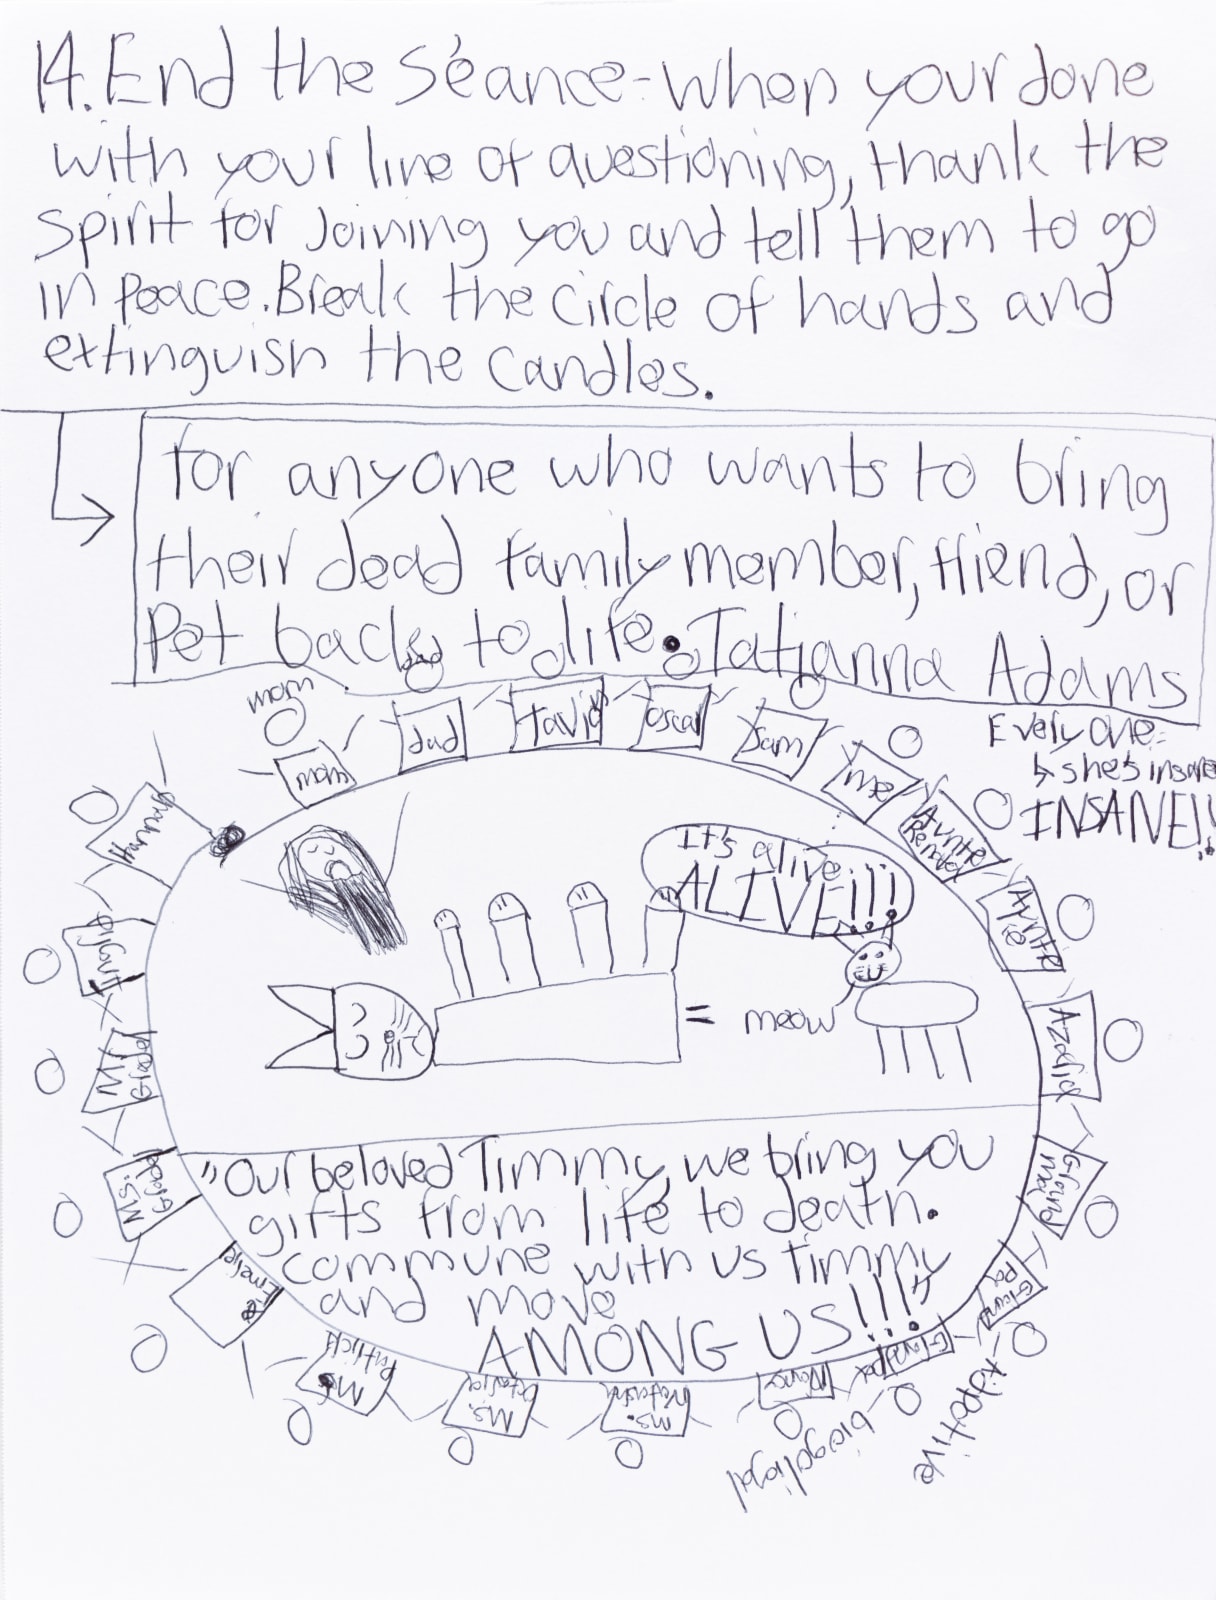 14. End the séance - when your done
with your line of questioning, thank the
spirit for joining you and tell them to go
in peace. Break the circle of hands and
extinguish the candles.
for anyone who wants to bring
their dead family member, friend, or
Pet back to life. Tatjanna Adams
Every one =
↳ she's insane
INSANE!!
mom
dad
mom
dad
oscar
sam
me
Auntie
Auntie
Pie
Azaria
granny
It's alive
ALIVE!!!
= meow
"Our beloved Timmy, we bring you
gifts from life to death.
commune with us timmy
and move
AMONG US!!!"
Mr.
Ms.
Emelie
Ms.
Ms.
Ms.